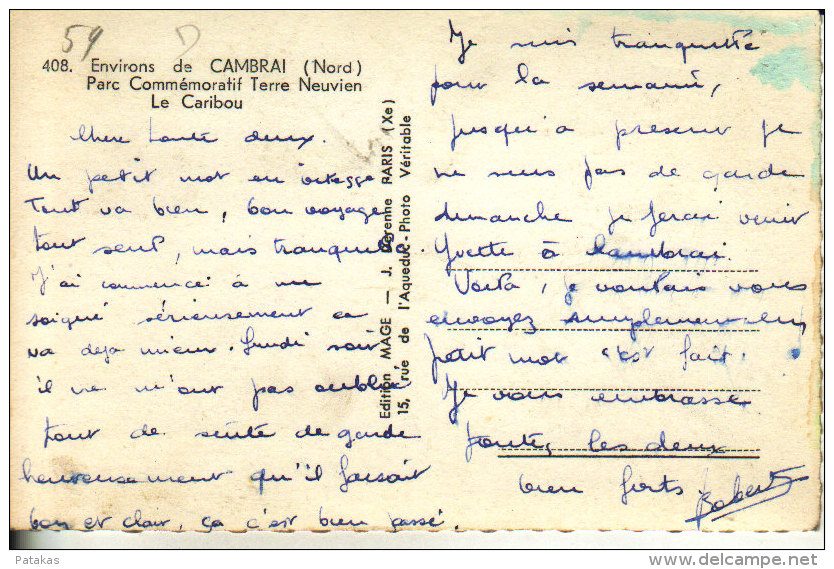 54
408. Environs de CAMBRAI (Nord)
Parc Commémoratif Terre Neuvien
Le Caribou
Chere toute deux.
Un petit mot en vitesse
Tout va bien, bon voyage
tout seul, mais tranquille.
J'ai commencei à me
soigné sérieusement ca
va deja mieux. Lundi soir
il ne m'ont pas oublié
tout de suite de garde
heureusement qu'il faisait
bon et clair, ça c'est bien passé.
Edition MAGE — J. Derenne PARIS (Xe)
15, rue de l'Aqueduc - Photo Véritable
Je suis tranquille
pour la semaine,
jusqu'a present je
ne suis pas de garde
dimanche je ferai venir
Yvette à Cambrai.
Voila, je voulais vous
envoyez simplement un
petit mot c'est fait.
Je vous embrasse
toutes les deux
bien forts.
Robert
Patakas
delcampe.net